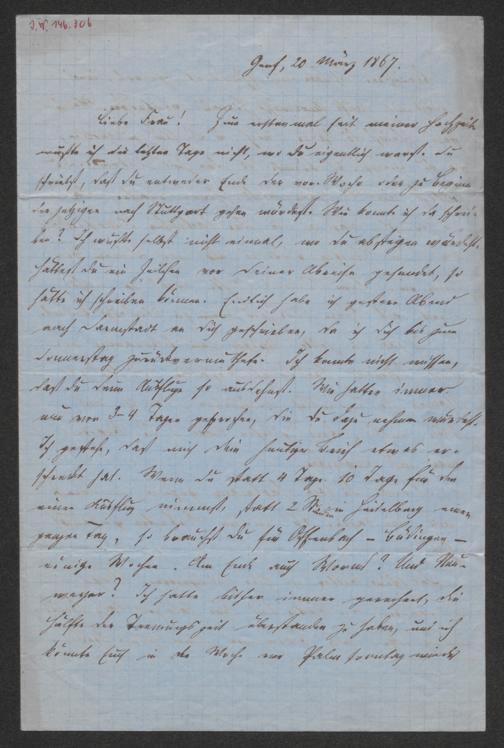 J.N. 146.306
Genf, 20 März 1867.
Liebe Frau! Zum erstenmal seit meiner Hochzeit
wußte ich die letzten Tage nicht, wo du eigentlich warst. Du
schriebst, daß du entweder Ende der vor. Woche oder zu Beginn
der jetzigen nach Stuttgart gehen würdest. Wie konnte ich da schrei-
ben? Ich wußte selbst nicht einmal, wo du absteigen würdest.
Hättest du ein Zeilchen vor deiner Abreise gesendet, so
hätte ich schreiben können. Endlich habe ich gestern Abend
nach Darmstadt an dich geschrieben, da ich dich bis zum
Donnerstag zurück vermuthete. Ich konnte nicht wissen,
daß du deine Ausflüge so ausdehnst. Wir hatten immer
nur von 3-4 Tagen gesprochen, die du dazu nehmen würdest.
Ich gestehe, daß mich dein heutiger Brief etwas er-
schreckt hat. Wenn du statt 4 Tage 10 Tage für den
einen Ausflug nimmst, statt 2 Stunden in Heidelberg einen
ganzen Tag, so brauchst du für Offenbach – Büdingen –
einige Wochen. Am Ende auch Worms? Und
Ich hatte bisher immer gerechnet, die
Hälfte der Trennungszeit überstanden zu haben, und ich
könnte Euch in der Woche vor Palmsonntag wieder